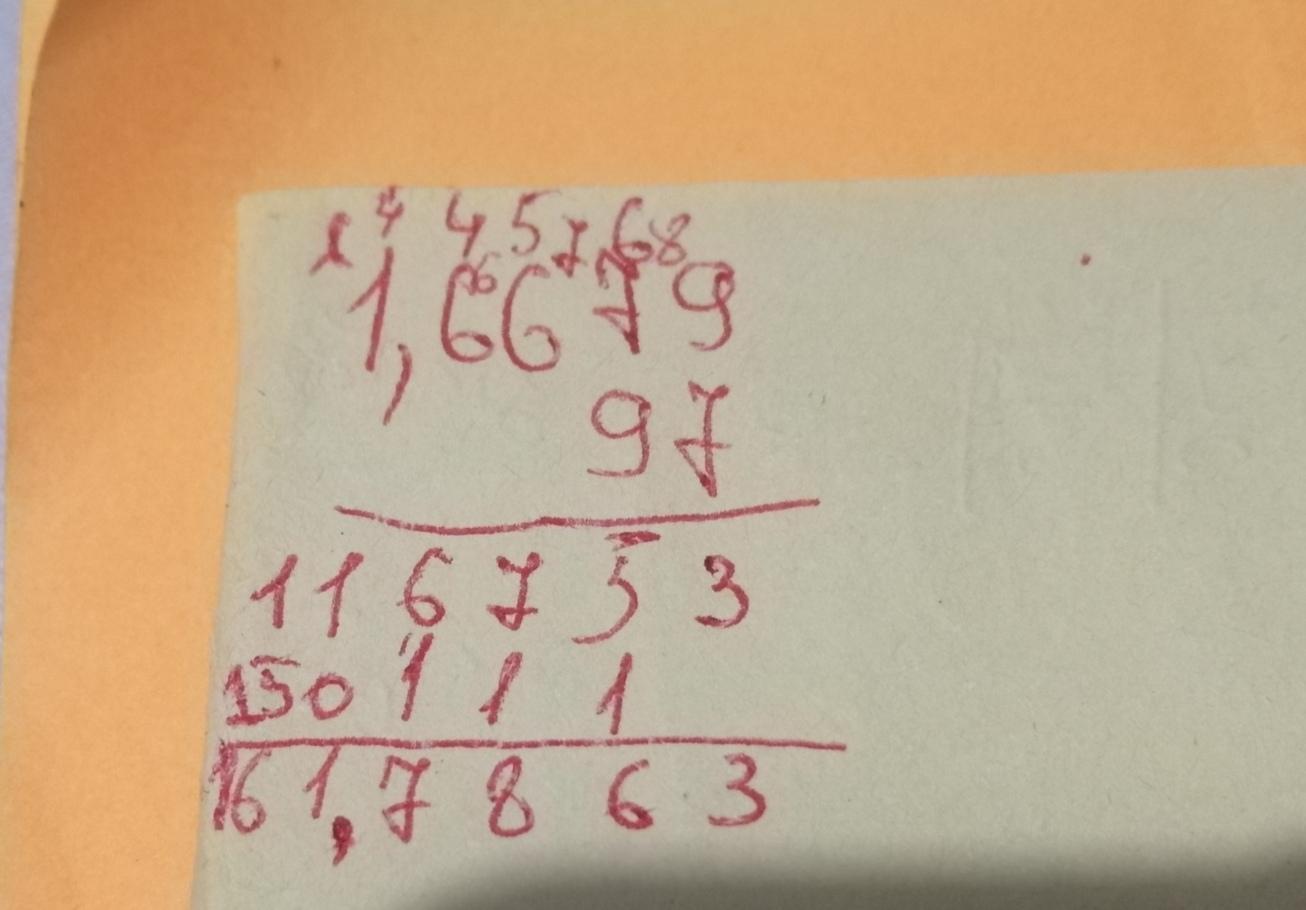 4 4 5 7 6 8
1,6679
97
116753
150111
161,7863